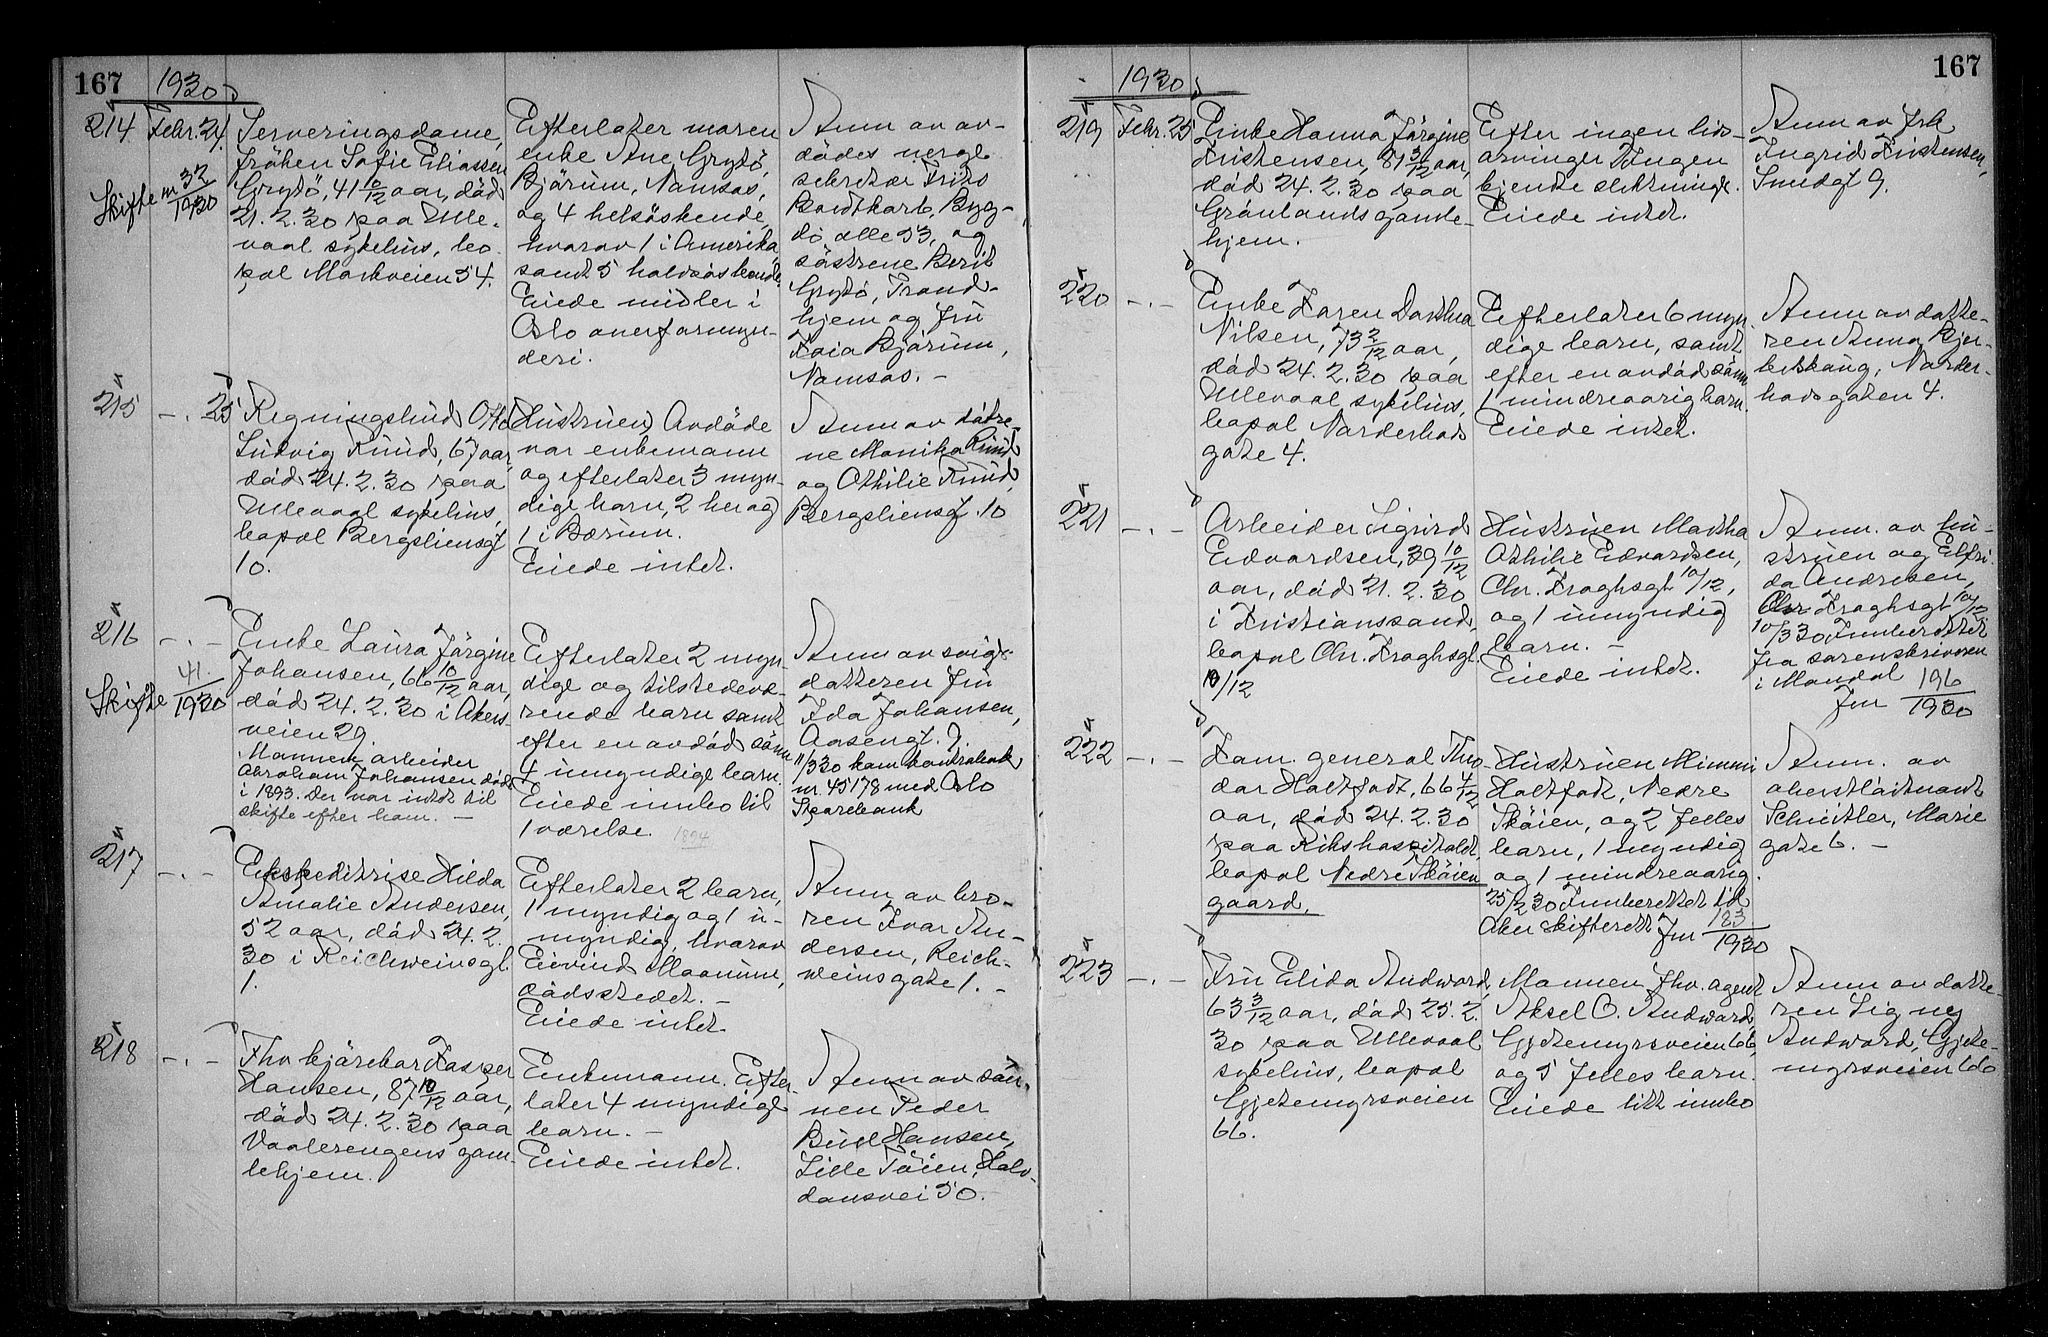 167
1930
214
Febr. 24.
Skifte nr 32/1930
Serveringsdame,
fröken Sofie Eliassen
Grytö, 41 10/12 aar, död
21.2.30 paa Ulle-
vaal sykehus, bo-
pæl Markveien 54.
Efterlater moren
enke Ane Grytö,
Björum, Namsos,
og 4 helsöskende,
hvorav 1 i Amerika,
samt 5 halvsöskende.
Eiede midler i
Oslo overformyn-
deri.
Anm av av-
dödes verge
sekretær Frits
Bygdö alle 53, og
söstrene Berit
Grytö, Trond-
hjem og fru
Kaia Bjørum,
Namsos. -
215
-.- 25
Regningsbud Otto
Ludvig Ruud, 67 aar,
död 24.2.30 paa
Ullevaal sykehus,
bopæl Bergsliensgt
10.
Hustruen Avdöde
var enkemann
og efterlater 3 myn-
dige barn, 2 her og
1 i Bærum.
Eiede intet.
Anm av dötre-
ne Monika Ruud
og Othilie Ruud,
Bergsliensgt. 10
216
-.-
Skifte 41/1930
Enke Laura Jörgine
Johansen, 66 10/12 aar,
död 24.2.30 i Akers-
veien 29
Mannen arbeider
Abraham Johansen döde
i 1893. Der var intet til
skifte efter ham. -
Efterlater 2 myn-
dige og tilstedevæ-
rende barn samt
efter en avdöd sönn
4 umyndige barn.
Eiede innbo til
1 værelse. 1894
Anm av sviger-
datteren fru
Ida Johansen,
Aasengt. 9.
11/3 30 kom kontrabok
nr. 45178 med Oslo
Sparebank
217
-.-
Ekspeditrise Hilda
Amalie Andersen,
52 aar, död 24.2.
30 i Reichweinsgt.
1.
Efterlater 2 barn,
1 myndig og 1 u-
myndig, hvorav
Eivind
dödsstedet. -
Eiede intet.
Anm av bro-
ren Ivar An-
dersen, Reich-
weinsgate 1. -
218
-.-
Fhv kjörekar Kasper
Hansen, 87 10/12 aar,
död 24.2.30 paa
Vaalerengens gam-
lehjem.
Enkemann. Efter-
later 4 myndige
barn. -
Eiede intet.
Anm av sön-
nen Peder
Hansen,
Lille Töien, Halv-
dansvei 50.
167
1930
219
Febr. 25
Enke Hanna Jörgine
Kristensen, 81 3/12 aar,
död 24.2.30 paa
Grönlands gamle-
hjem.
Efter ingen livs-
arvinger Ingen
kjendte slektninge.
Eiede intet.
Anm av frk
Ingrid Kristensen,
Smedgt 9.
220
-.-
Enke Karen Dorthea
Nilsen, 73 2/12 aar,
död 24.2.30 paa
Ullevaal sykehus,
bopæl Norderhovs
gate 4.
Efterlater 6 myn-
dige barn, samt
efter en avdöd sönn
1 mindreaarig barn.
Eiede intet.
Anm av datte-
ren Anna Bjer-
keskaug, Norder-
hovsgaten 4.
221
-.-
Arbeider Sigurd
Edvardsen, 39 10/12
aar, död 21.2.30
i Kristianssand,
bopæl Chr. Kroghsgt.
10/12
Hustruen Martha
Othilie Edvardsen,
Chr. Kroghsgt 10/12,
og 1 umyndig
barn. -
Eiede intet.
Anm. av hu-
struen og Elfri-
da Andresen,
Chr Kroghsgt 10/12
10/3 30 Innberettet
fra sorenskriveren
i Mandal
Jnr 196/1930
222
-.-
Kom. general Theo-
dor Holtfodt, 66 4/12
aar, död 24.2.30
paa Rikshospitalet,
bopæl Nedre Sköien
gaard.
Hustruen Mimmi
Holtfodt, Nedre
Sköien, og 2 felles
barn, 1 myndig
og 1 mindreaarig.
25/2 30 Innberettet til
Aker skifterett Jnr 183/1930
Anm. av
oberstlöitnant
Schiötler, Marie
gate 6. -
223
-.-
Fru Elida Andword,
63 3/12 aar, död 25.2.
30 paa Ullevaal
sykehus, bopæl
Gjetemyrsveien
66.
Mannen fhv. agent
Aksel O. Andword,
Gjetemyrsveien 66,
og 5 felles barn.
Eiede litt innbo
Anm av datte-
ren Signy
Andword, Gjete-
myrsveien 66